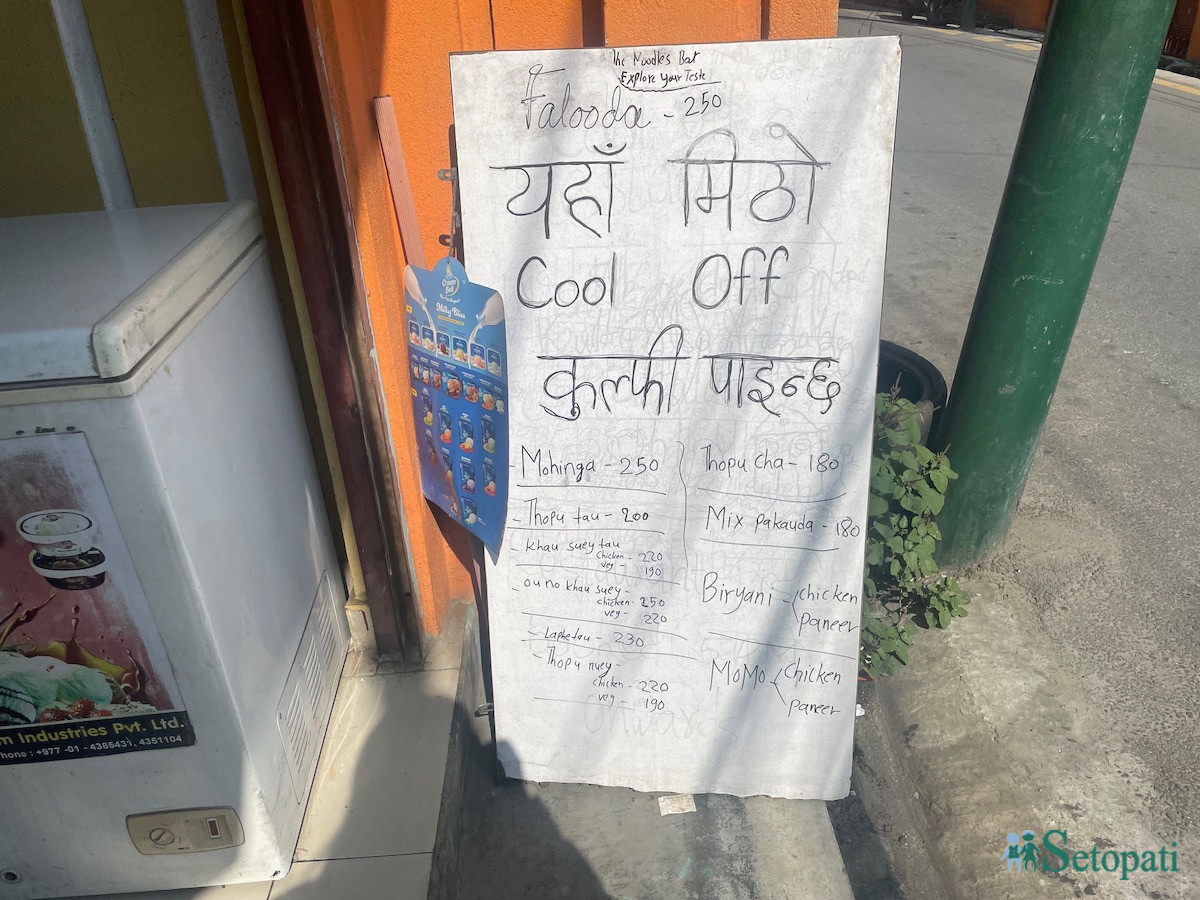 The Noodles Bar
Explore Your Teste
Falooda - 250
यहाँ मिठो
Cool Off
कुल्फी पाइन्छ
Mohinga - 250
Thopu tau - 200
khau suey tau
chicken - 220
veg - 190
ou no khau suey -
chicken - 250
veg - 220
Laphe tau - 230
Thopu nuey -
chicken - 220
veg - 190
Thopu cha - 180
Mix pakauda - 180
Biryani - chicken
paneer
MoMo - chicken
paneer
Cream Bell
Milky Bliss
m Industries Pvt. Ltd.
Phone : +977 -01 - 4385431, 4351104
Setopati